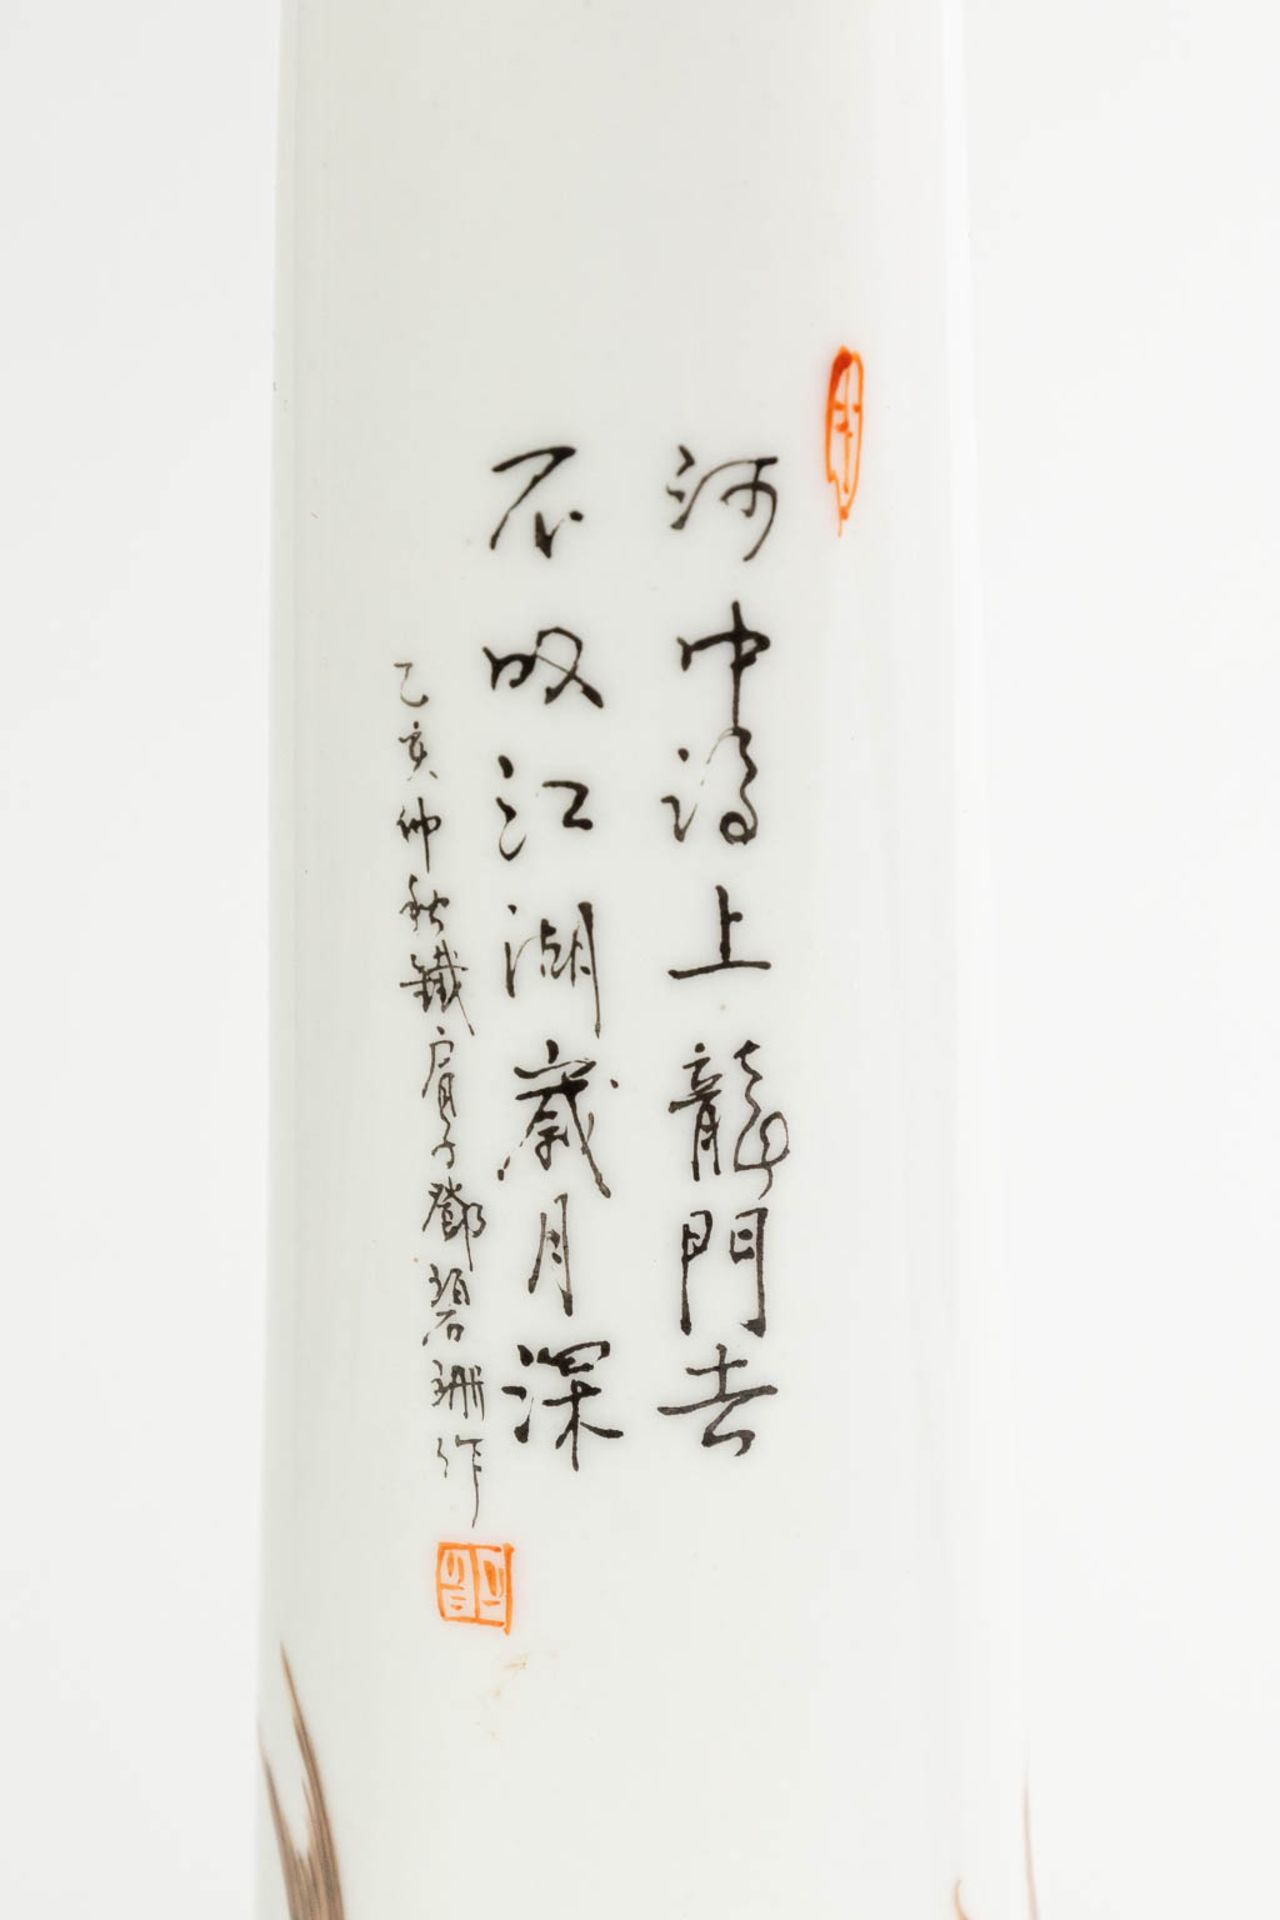 河中得上龍門去
不叹江湖歲月深
乙亥仲秋鐵肩子鄧碧珊作